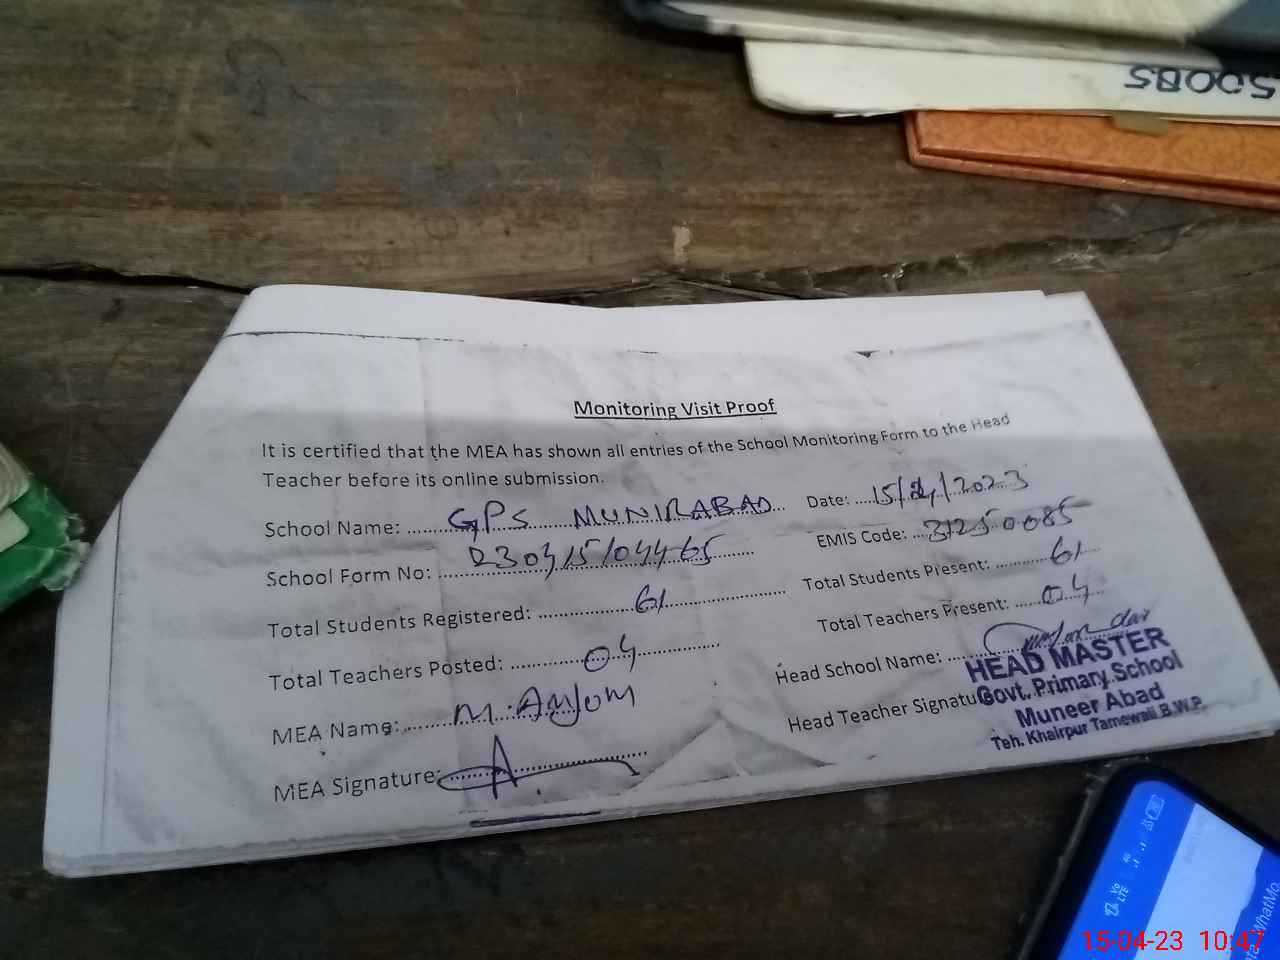 50085
Monitoring Visit Proof
It is certified that the MEA has shown all entries of the School Monitoring Form to the Head
Teacher before its online submission.
School Name: GPS MUNIRABAD Date: 15/4/2023
School Form No: 230415/04465 EMIS Code: 31250085
Total Students Registered: 61 Total Students Present: 61
Total Teachers Posted: 04 Total Teachers Present: 04
MEA Name: M. Anjom Head School Name:
MEA Signature: A. Head Teacher Signatu
HEAD MASTER
Govt. Primary School
Muneer Abad
Teh. Khairpur Tamewali B.W.P.
Vo
LTE
4G
WhatMo
15-04-23 10:47